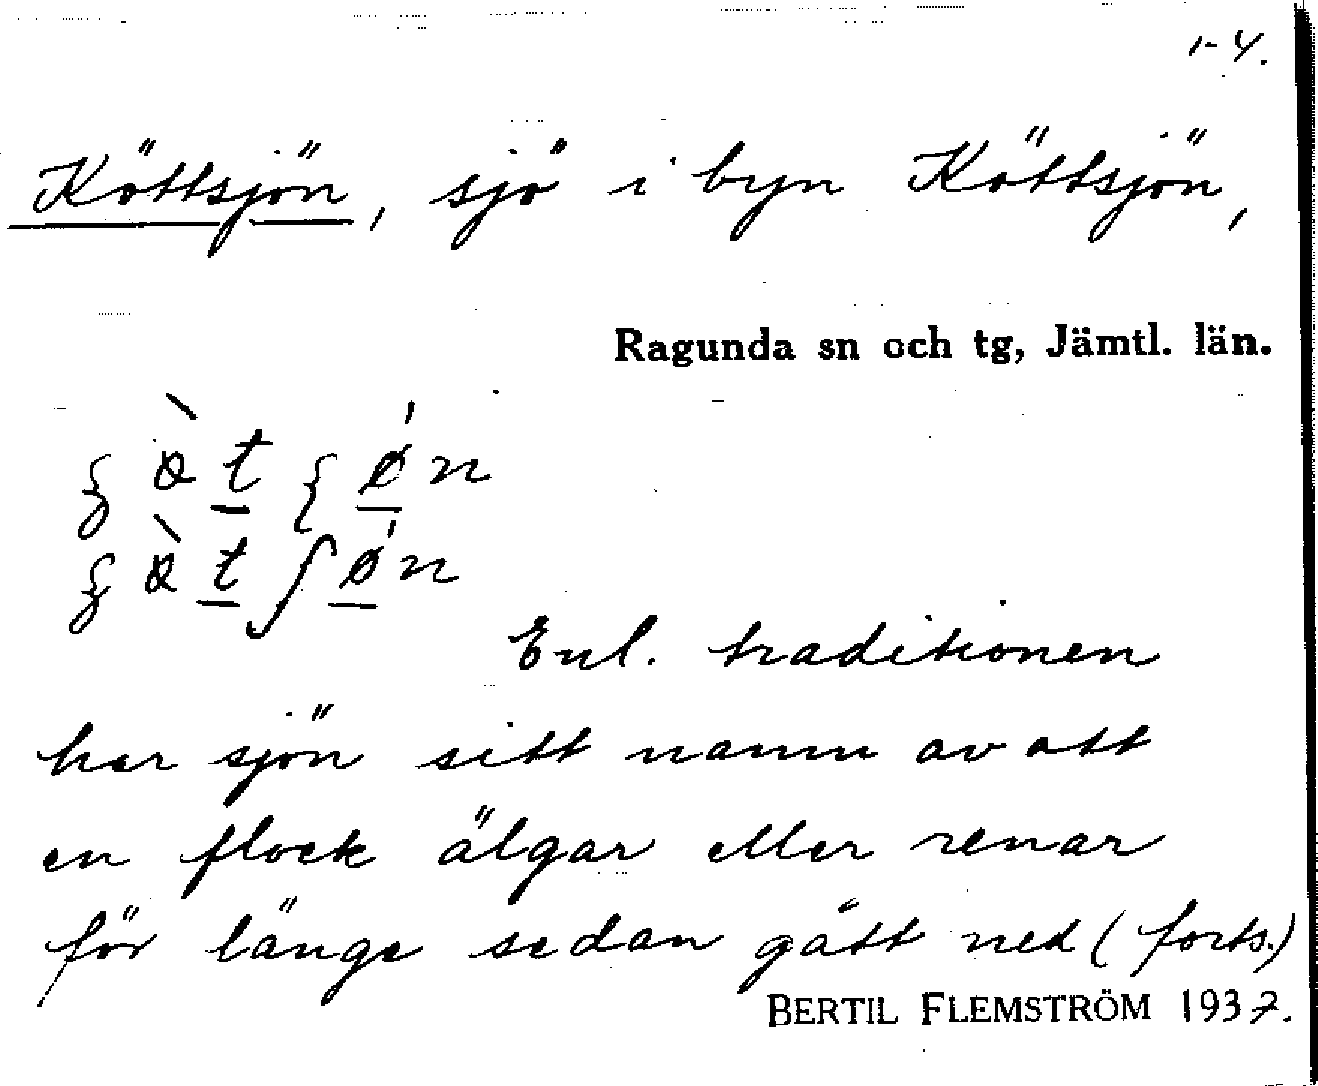 1-4.
Köttsjön, sjö i byn Köttsjön,
Ragunda sn och tg, Jämtl. län.
Enl. traditionen
har sjön sitt namn av att
en flock älgar eller renar
för länge sedan gått ned (forts.)
BERTIL FLEMSTRÖM 1937.